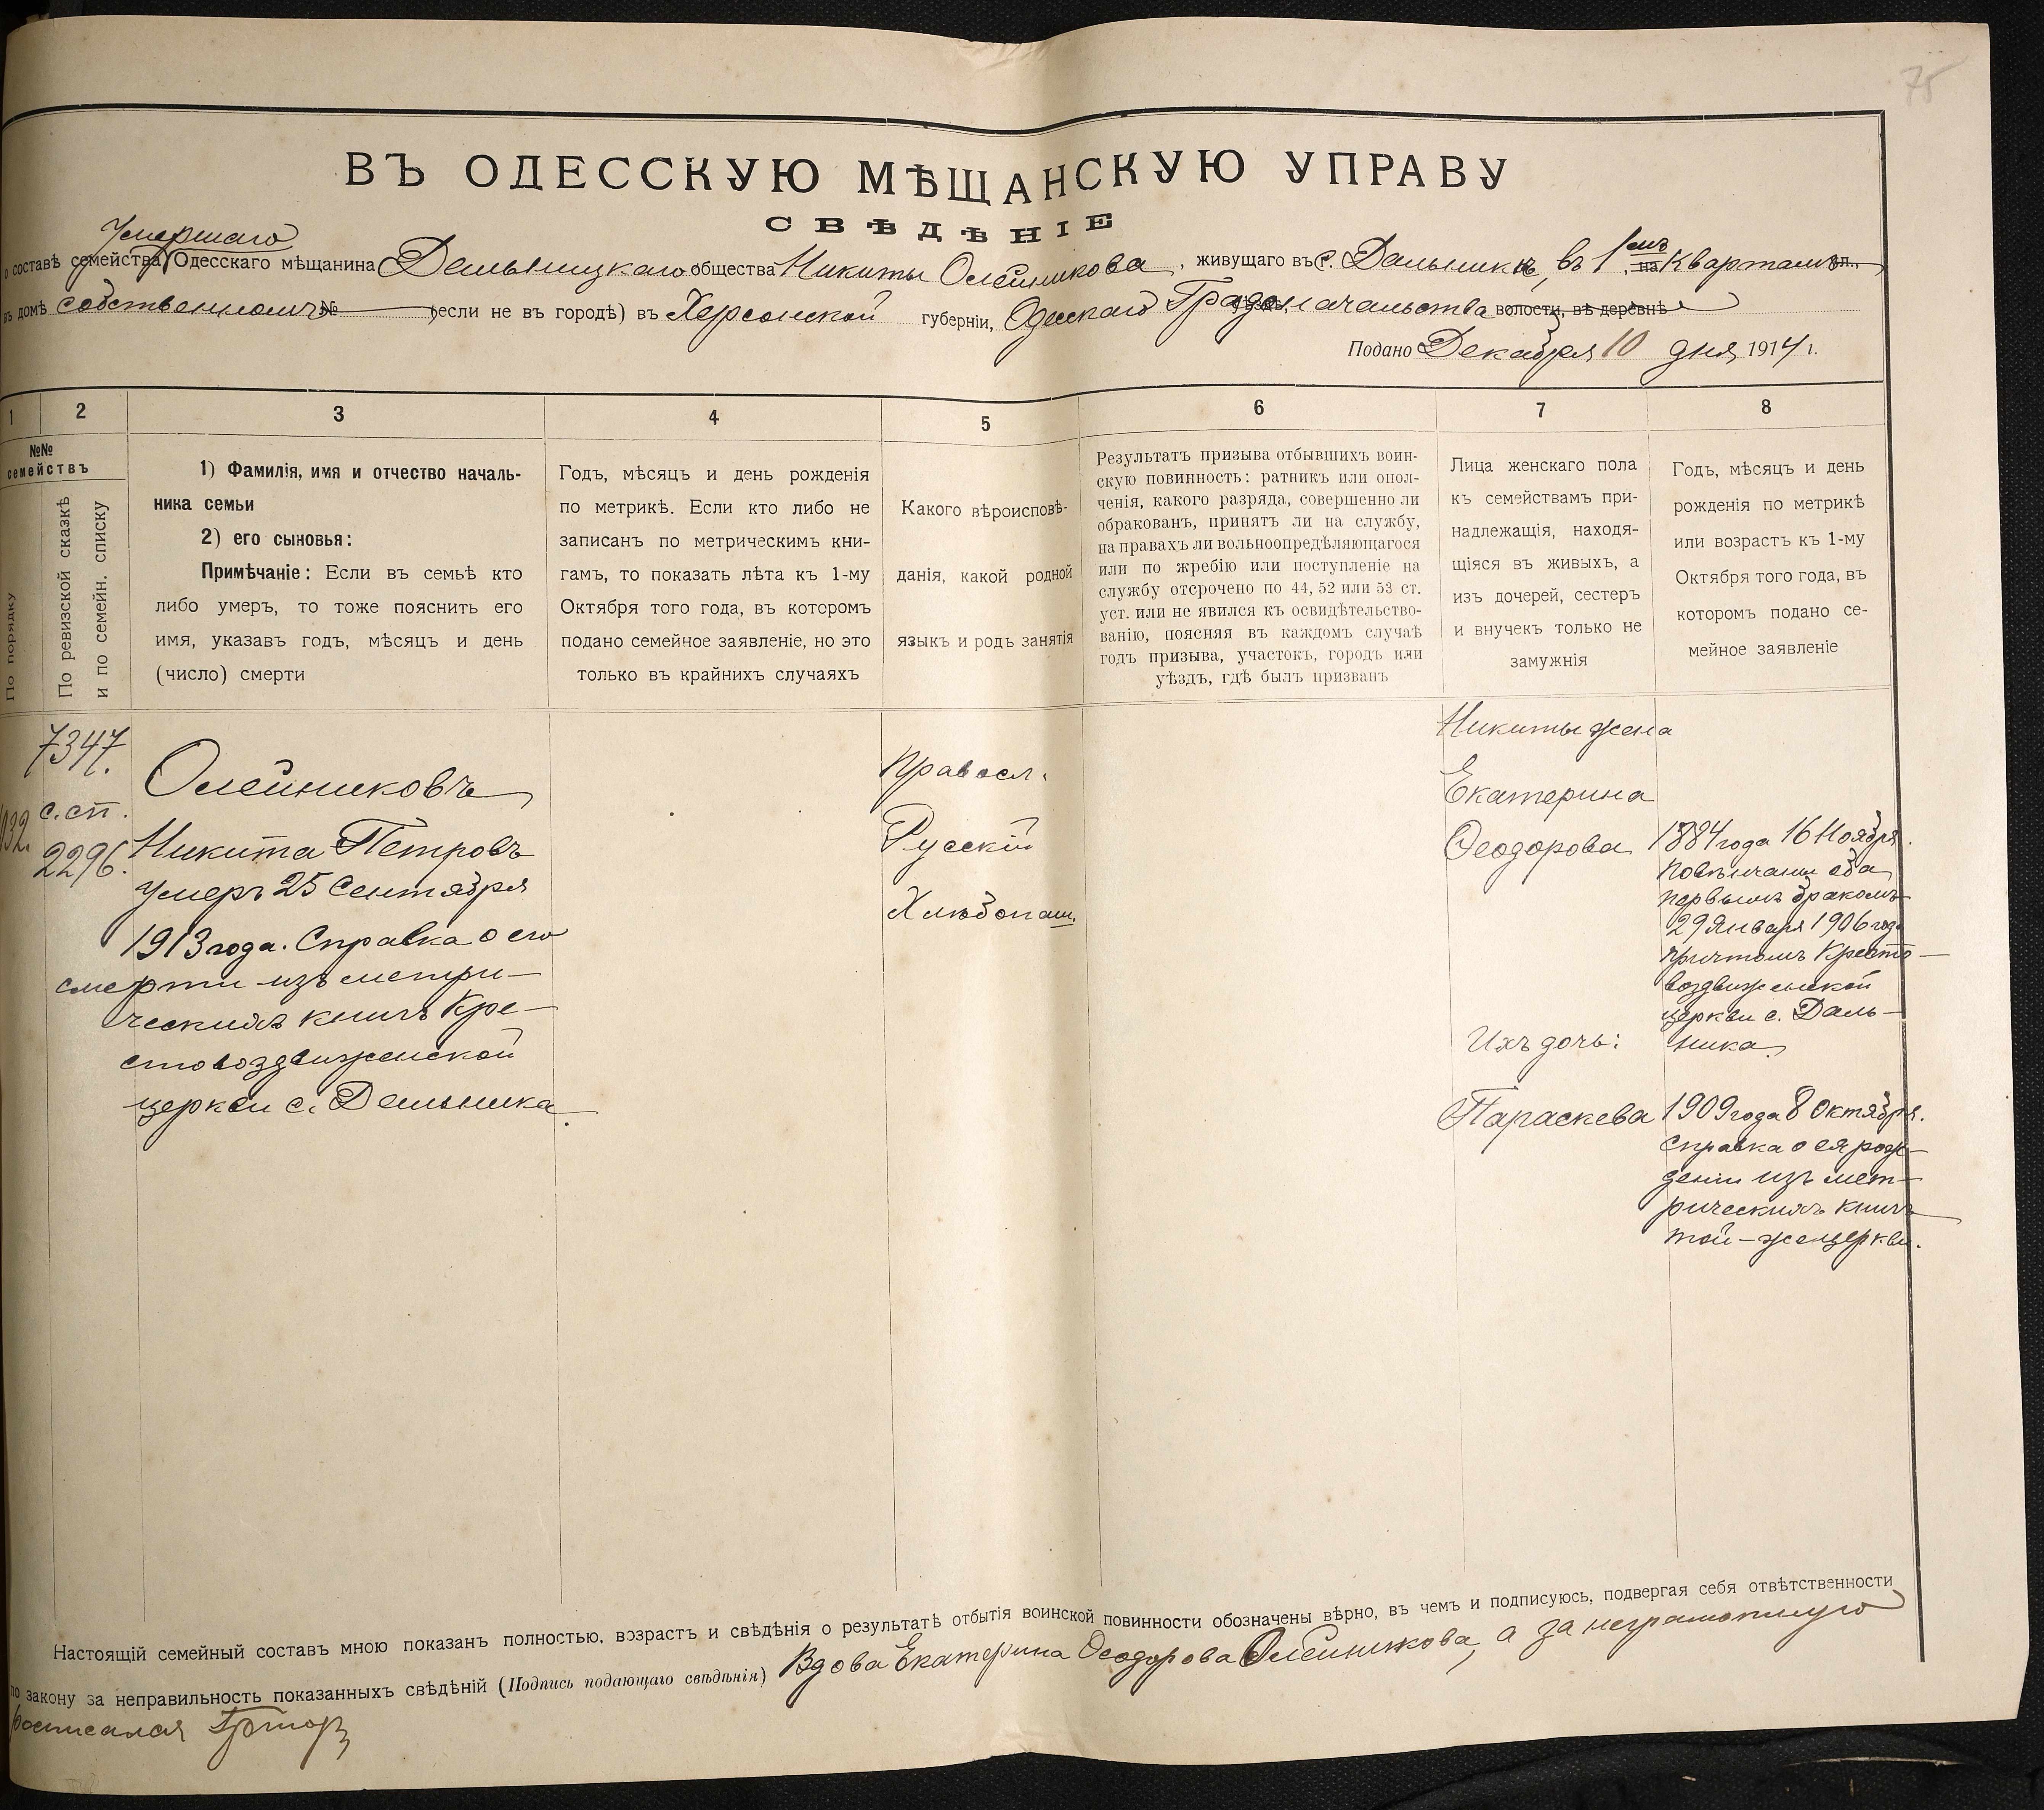 75
ВЪ ОДЕССКУЮ МѢЩАНСКУЮ УПРАВУ
СВѢДѢНІЕ
Умершаго
о составѣ семейства Одесскаго мѣщанина Дальницкаго общества Никиты Олейникова, живущаго въ с. Дальникѣ, въ 1омъ на кварталѣ ул.,
въ домѣ собственномъ № (если не въ городѣ) въ Херсонской губерніи, Одесскаго Градоначальства уѣзда, волости, въ деревнѣ
Подано Декабря 10 дня 1914 г.
1 2 3 4 5 6 7 8
№№ семействъ
По порядку
По ревизской сказкѣ
и по семейн. списку
1) Фамилія, имя и отчество началь-
ника семьи
2) его сыновья:
Примѣчаніе: Если въ семьѣ кто
либо умеръ, то тоже пояснить его
имя, указавъ годъ, мѣсяцъ и день
(число) смерти
Годъ, мѣсяцъ и день рожденія
по метрикѣ. Если кто либо не
записанъ по метрическимъ кни-
гамъ, то показать лѣта къ 1-му
Октября того года, въ которомъ
подано семейное заявленіе, но это
только въ крайнихъ случаяхъ
Какого вѣроисповѣ-
данія, какой родной
языкъ и родъ занятія
Результатъ призыва отбывшихъ воин-
скую повинность: ратникъ или опол-
ченія, какого разряда, совершенно ли
обракованъ, принятъ ли на службу,
на правахъ ли вольноопредѣляющагося
или по жребію или поступленіе на
службу отсрочено по 44, 52 или 53 ст.
уст. или не явился къ освидѣтельство-
ванію, поясняя въ каждомъ случаѣ
годъ призыва, участокъ, городъ или
уѣздъ, гдѣ былъ призванъ
Лица женскаго пола
къ семействамъ при-
надлежащія, находя-
щіяся въ живыхъ, а
изъ дочерей, сестеръ
и внучекъ только не
замужнія
Годъ, мѣсяцъ и день
рожденія по метрикѣ
или возрастъ къ 1-му
Октября того года, въ
которомъ подано се-
мейное заявленіе
7347.
с. сп.
2296.
Олейниковъ
Никита Петровъ
умеръ 25 Сентября
1913 года. Справка о его
смерти изъ метри-
ческихъ книгъ Кре-
стовоздвиженской
церкви с. Дальника.
Правосл.
Русскій
Хлѣбопаш.
Никиты жена
Екатерина
Ѳеодорова
Ихъ дочь:
Параскева
1884 года 16 Ноября.
Повѣнчаны оба
первымъ бракомъ
29 Января 1906 года
причтомъ Кресто-
воздвиженской
церкви с. Даль-
ника.
1909 года 8 Октября.
Справка о ея рож-
деніи изъ мет-
рическихъ книгъ
той-же церкви.
Настоящій семейный составъ мною показанъ полностью, возрастъ и свѣдѣнія о результатѣ отбытія воинской повинности обозначены вѣрно, въ чемъ и подписуюсь, подвергая себя отвѣтственности
по закону за неправильность показанныхъ свѣдѣній (Подпись подающаго свѣдѣнія) Вдова Екатерина Ѳеодорова Олейникова, а за неграмотную
росписался